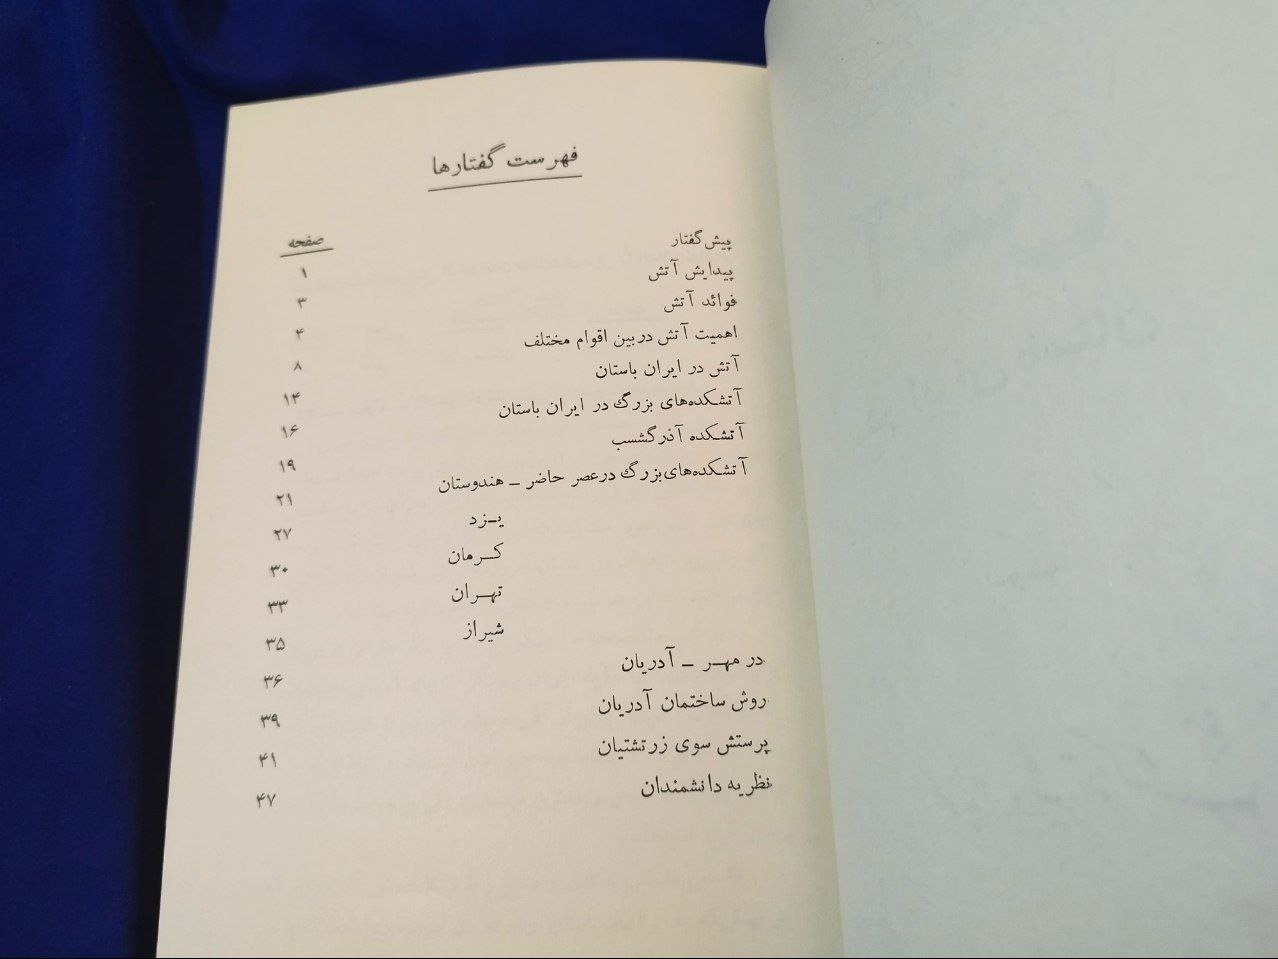 فهرست گفتارها
صفحه
پیش گفتار ۱
پیدایش آتش ۳
فوائد آتش ۴
اهمیت آتش دربین اقوام مختلف ۸
آتش در ایران باستان ۱۴
آتشکده‌های بزرگ در ایران باستان ۱۶
آتشکده آذرگشسب ۱۹
آتشکده‌های بزرگ درعصر حاضر – هندوستان ۲۱
یـزد ۲۷
کـرمان ۳۰
تهـران ۳۳
شیراز ۳۵
در مهـر – آدریان ۳۶
روش ساختمان آدریان ۳۹
پرستش سوی زرتشتیان ۴۱
نظریه دانشمندان ۴۷